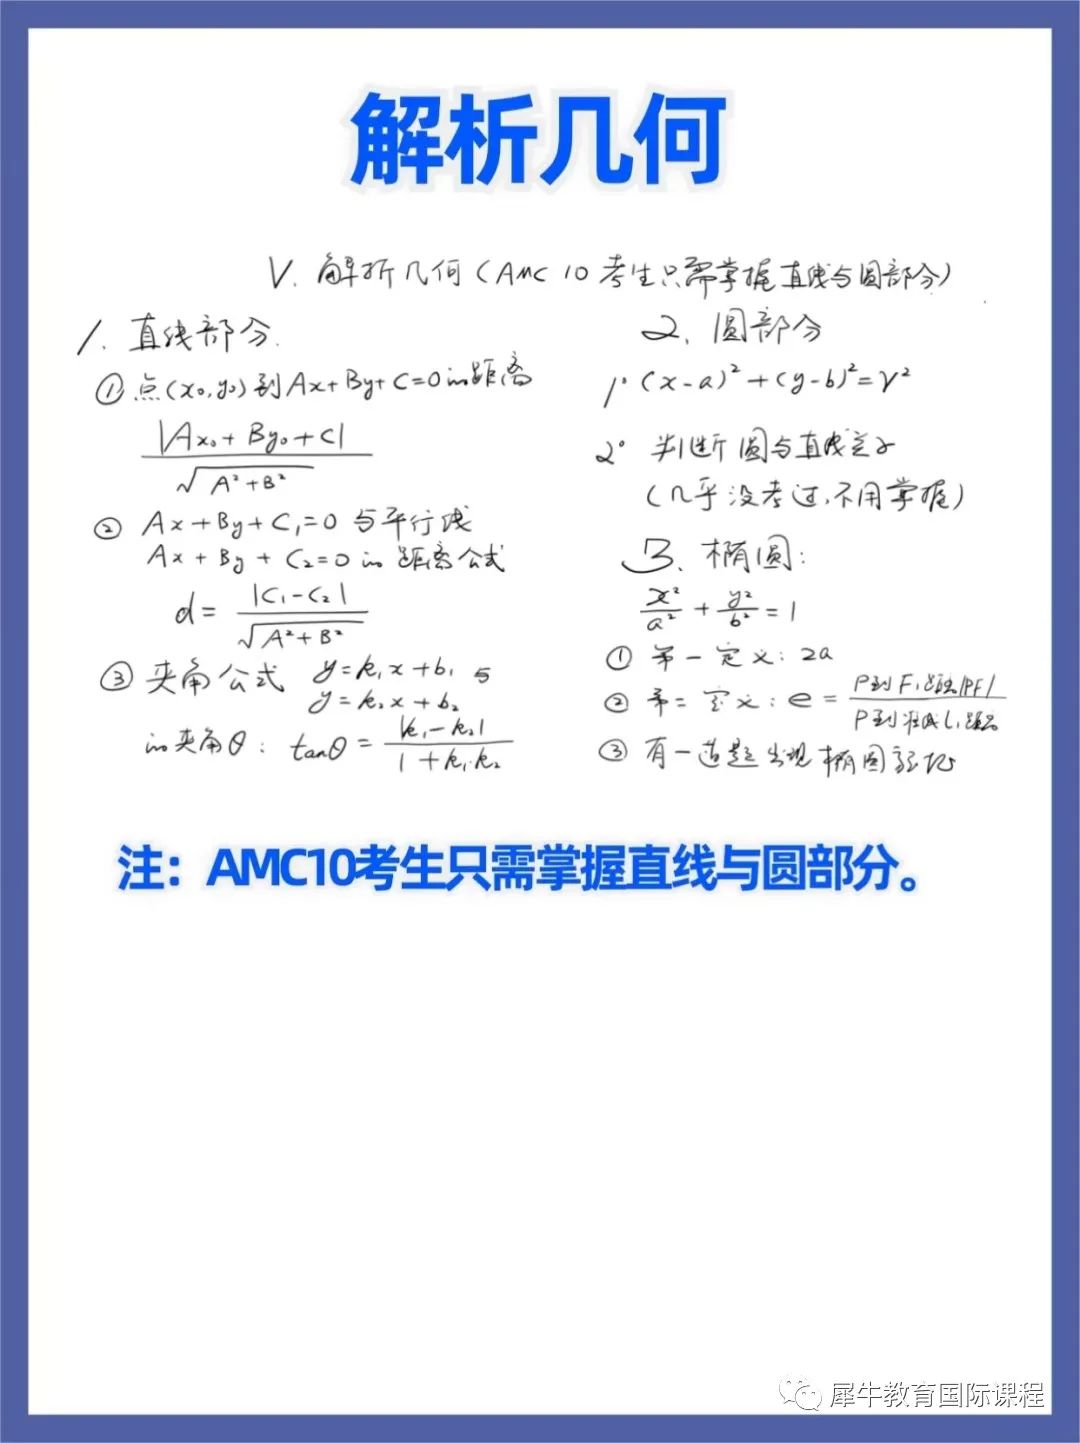 解析几何
V. 解析几何（AMC 10 考生只需掌握直线与圆部分）
1. 直线部分.
① 点(x₀,y₀)到Ax+By+C=0的距离
|Ax₀+By₀+C|
√A²+B²
② Ax+By+C₁=0 与平行线
Ax+By+C₂=0的距离公式
d= |C₁-C₂|
√A²+B²
③ 夹角公式 y=k₁x+b₁与
y=k₂x+b₂
的夹角θ: tanθ= |k₁-k₂|
1+k₁·k₂
2. 圆部分
1° (x-a)²+(y-b)²=r²
2° 判断圆与直线
(几乎没考过,不用掌握)
3. 椭圆:
x²/a² + y²/b² =1
① 第一定义: 2a
② 第二定义: e= P到F₁距离|PF|
P到准线L₁距离
③ 有一道题出现椭圆
注：AMC10考生只需掌握直线与圆部分。
犀牛教育国际课程